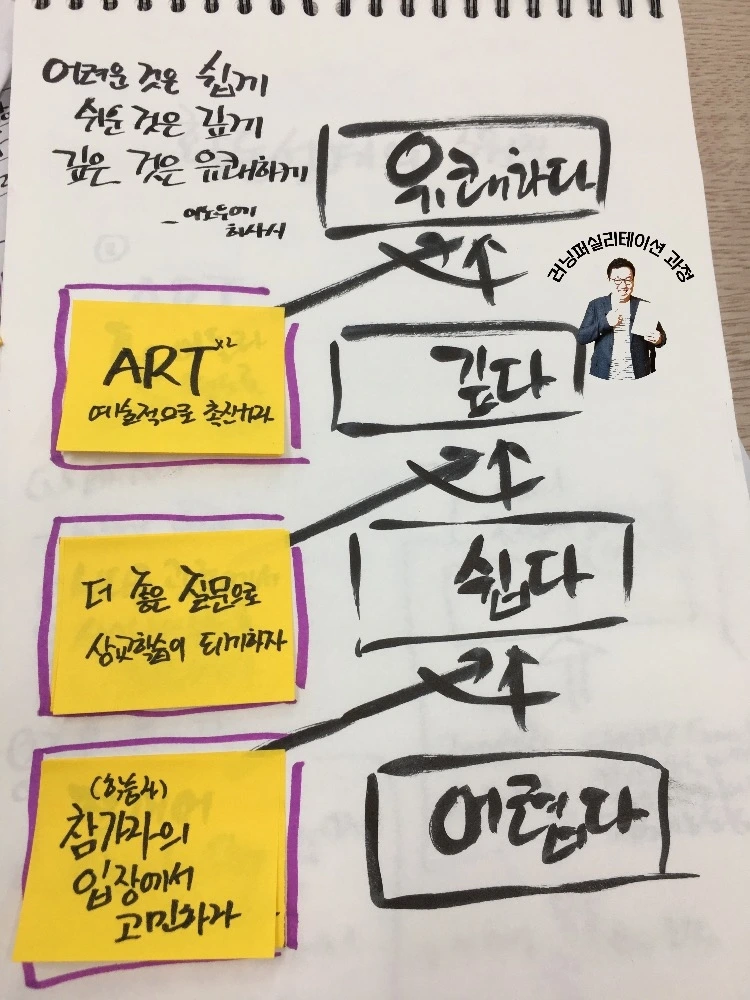 어려운 것은 쉽게
쉬운 것은 깊게
깊은 것은 유쾌하게
- 이노우에
히사시
유쾌하다
러닝퍼실리테이션 과정
ART x2
예술적으로 촉진하라
깊다
더 좋은 질문으로
상교학습이 되게하자
쉽다
(학습자)
참가자의
입장에서
고민하라
어렵다